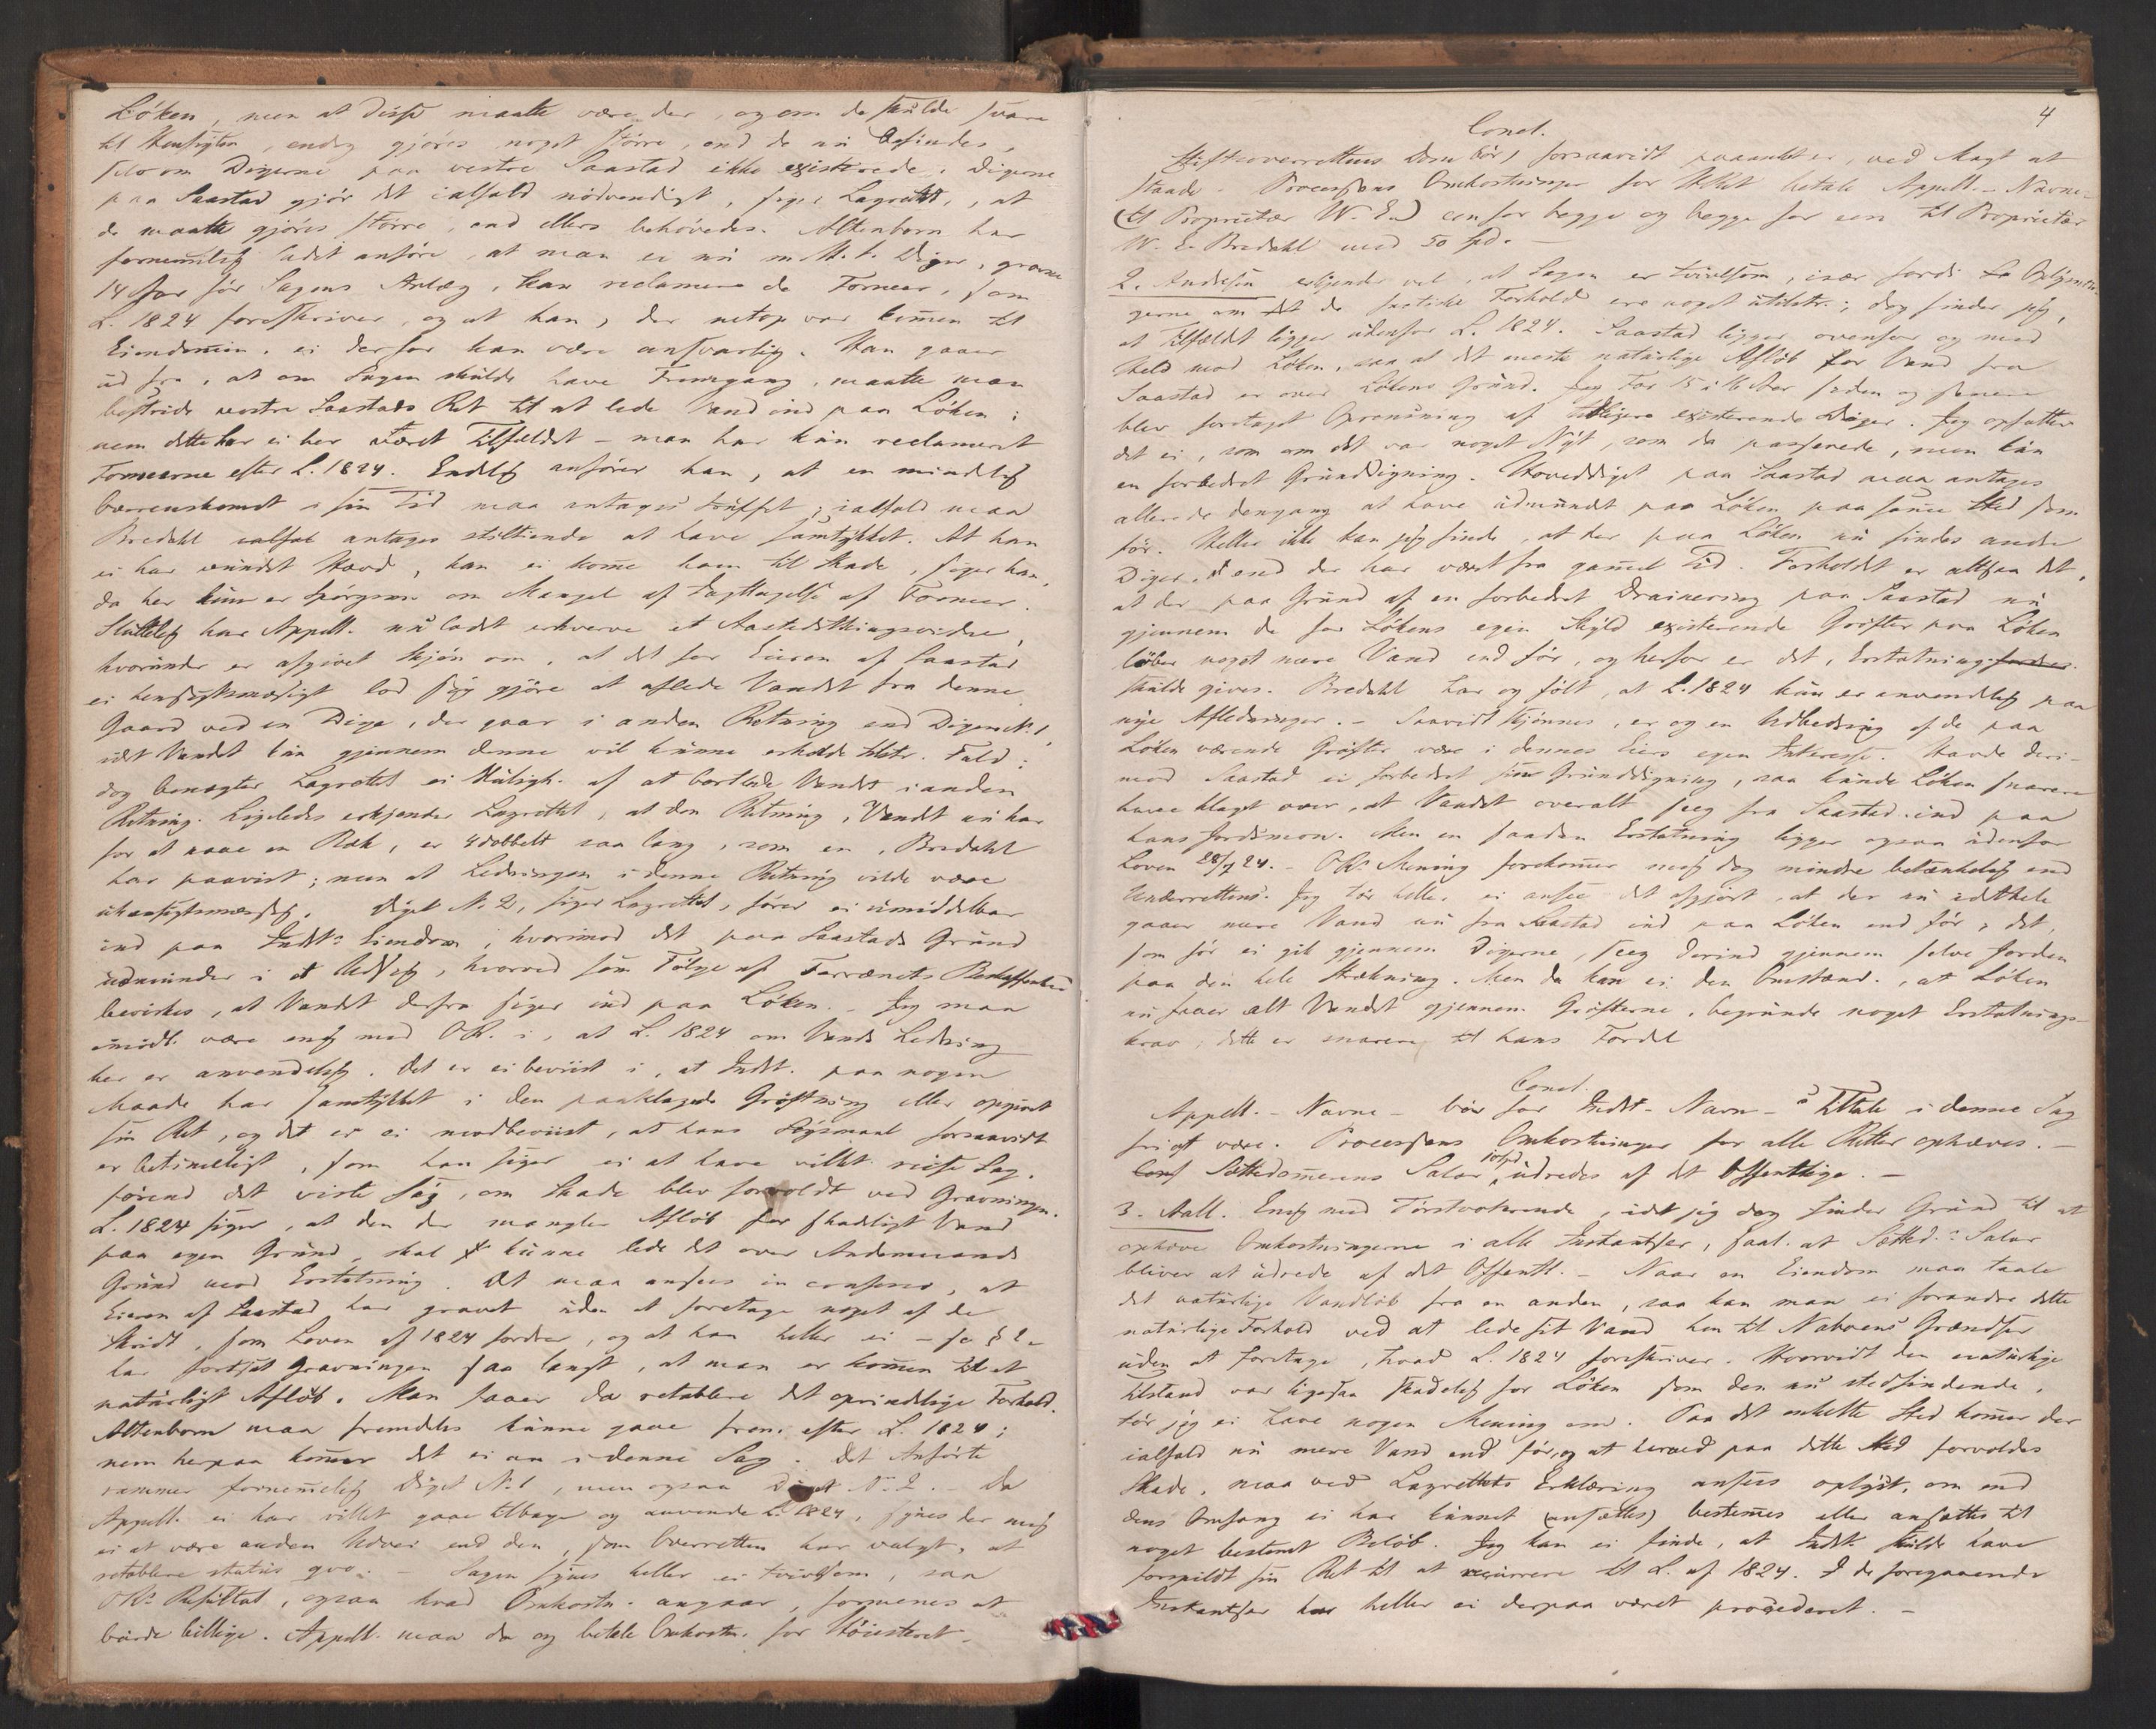 Löken, men at disse maatte være der, og om de skulde svare
til Hensigten, endog gjøres noget större, end de nu befindes,
selv om Digerne paa vestre Saastad ikke existerede. Digerne
paa Saastad gjör det ialfald nödvendigt, siger Lagrettet, at
de maatte gjöres större, end ellers behövedes. Altenborn har
fornemmelig ladet anföre, at man ei nu m. H. t. Diger, gravne
14 Aar för Sagens Anlæg, kan reclamere de Former, som
L. 1824 foreskriver, og at han, der netop var kommen til
Eiendommen, ei derfor kan være ansvarlig. Han gaaer
ud fra, at om Sagen skulde have Fremgang, maatte man
bestride vestre Saastads Ret til at lede Vand ind paa Löken;
men dette har ei her været Tilfældet – man har kun reclameret
Formerne efter L. 1824. Endelig anförer han, at en mindelig
Overenskomst i sin Tid maa antages truffet; ialfald maa
Bredahl antages stiltiende at have samtykket. At han
ei har vundet Hævd, kan ei komme ham til Skade, siger han,
da her kun er Spörgsm. om Mangel af Iagttagelse af Former.
Sluttelig har Appell. nu ladet erhverve et Aastedsthingsvidne,
hvorunder er afgivet Skjön om, at det for Eieren af Saastad
ei hensigtsmæssigt lod sig gjöre at aflede Vandet fra denne
Gaard ved en Dige, der gaar i anden Retning end Digerne No 1,
idet Vandet kun gjennem denne vil kunne erholde tilstr. Fald;
dog benægter Lagrettet ei Muligh. af at bortlede Vandet i anden
Retning. Ligeledes erkjender Lagrettet, at den Retning, Vandet nu har
for at naae en Bæk, er 4 dobbelt saa lang, som en, Bredahl
har paavist; men at Ledningen i denne Retning vilde være
uhensigtsmæssig. Diget No 2, siger Lagrettet, förer ei umiddelbar
ind paa Indst.s Eiendom, hvorimod det paa Saastads Grund
udmunder i et Udslag, hvorved som Fölge af Terrænets Beskaffenhed
bevirkes, at Vandet derfra siger ind paa Löken. – Jeg maa
imidl. være enig med OR. i, at L. 1824 om Vands Ledning
her er anvendelig. Det er ei beviist i, at Indst. paa nogen
Maade har samtykket i den paaklagede Gröftning eller opgivet
sin Ret, og det er ei modbeviist, at hans Sögsmaal forsaavidt
er betimeligt, som han siger ei at have villet reise Sag,
förend det viste sig, om Skade blev forvoldt ved Gravningen.
L. 1824 siger, at den der mangler Aflöb for skadeligt Vand
paa egen Grund, skal kunne lede det over Andenmands
Grund mod Erstatning. Det maa ansees in confesso, at
Eieren af Saastad har gravet uden at foretage noget af de
Skridt, som Loven af 1824 fordrer, og at han heller ei – se § 2 –
har fortsat Gravningen saa langt, at man er kommen til et
naturligt Aflöb. Man faaer da retablere det oprindelige Forhold.
Altenborn maa fremdeles kunne gaae frem efter L. 1824;
men herpaa kommer det ei an i denne Sag. Det Anförte
rammer fornemmelig Diget No 1, men ogsaa Diget No 2. – Da
Appell. ei har villet gaae tilbage og anvende L. 1824, synes der mig
ei at være anden Udvei end den, som Overretten har valgt, at
retablere status qvo. – Sagen synes heller ei tvivlsom, saa
ORs Resultat, ogsaa hvad Omkostn. angaar, formenes at
burde billiges. Appell. maa da og betale Omkostn. for Höiesteret. –
4
Concl.
Stiftsoverrettens Dom bör, forsaavidt paaanket er, ved Magt at
stande. Processens Omkostninger for HRet betale Appell. – Navne –
(til Proprietær W. E.) een for begge og begge for een til Proprietær
W. E. Bredahl med 50 Spd. –
2. Andresen erkjender vel, at Sagen er tvivlsom, især fordi Oplysnin-
gerne om de factiske Forhold ere noget utilstr.; dog finder jeg,
at Tilfældet ligger udenfor L. 1824. Saastad ligger ovenfor og med
Held mod Löken, saa at det meste naturlige Aflöb for Vand fra
Saastad er over Lökens Grund. Jeg For 15 à 16 Aar siden og senere
blev foretaget Oprensning af tidligere existerende Diger. Jeg opfatter
det ei, som om det var noget Nyt, som da passerede, men kun
en forbedret Grunddigning. Hoveddiget paa Saastad maa antages
allerede dengang at have udmundet paa Löken paa samme Sted som
för. Heller ikke kan jeg finde, at der paa Löken nu findes andre
Diger, end der har været fra gammel Tid. Forholdet er altsaa det,
at der paa Grund af en forbedret Drainering paa Saastad nu
gjennem de for Lökens egen Skyld existerende Gröfter paa Löken
löber noget mere Vand end för, og herfor er det, Erstatning
skulde gives. Bredahl har og fölt, at L. 1824 kun er anvendelig paa
nye Afledninger. – Saavidt skjönnes, er og en Udbedring af de paa
Löken værende Gröfter være i dennes Eiers egen Interesse. Havde deri-
mod Saastad ei forbedret sin Grunddigning, saa kunde Löken snarere
have klaget over, at Vandet overalt seeg fra Saastad ind paa
hans Jordsmon. Men en saadan Erstatning ligger ogsaa udenfor
Loven 28/7 24. – ORs Mening forekommer mig dog mindre betænkelig end
Underrettens. Jeg tör heller ei ansee det afgjort, at der nu idethele
gaaer mere Vand nu fra Saastad ind paa Löken end för; det,
som för ei gik gjennem Digerne, seeg derind gjennem selve Jorden
paa den hele Strækning. Men da kan ei den Omstænd., at Löken
nu faaer alt Vandet gjennem Gröfterne, begrunde noget Erstatnings-
krav; dette er snarere til hans Fordel
Concl.
Appell. – Navne – bör for Indst. – Navn – s Tiltale i denne Sag
frie at være. Processens Omkostninger for alle Retter ophæves. –
Sættedommerens Salær, 10 Spd, udredes af det Offentlige. –
3. Aall. Enig med Förstvoterende, idet jeg dog finder Grund til at
ophæve Omkostningerne i alle Instantser, saal. at Sætted.s Salær
bliver at udrede af det Offentl. – Naar en Eiendom maa taale
det naturlige Vandlöb fra en anden, saa kan man ei forandre dette
naturlige Forhold ved at lede sit Vand hen til Naboens Grændser
uden at foretage, hvad L. 1824 foreskriver. Hvorvidt den naturlige
Tilstand var ligesaa skadelig for Löken som den nu stedfindende,
tör jeg ei have nogen Mening om. Paa det enkelte Sted kommer der
ialfald nu mere Vand end för, og at herved paa dette Sted forvoldes
Skade, maa ved Lagrettets Erklæring ansees oplyst, om end
dens Omfang ei har kunnet (ansættes) bestemmes eller ansættes til
noget bestemt Belöb. Jeg kan ei finde, at Indst. skulde have
forspildt sin Ret til at recurrere til L. af 1824. I de foregaaende
Instantser har heller ei derpaa været procederet. –